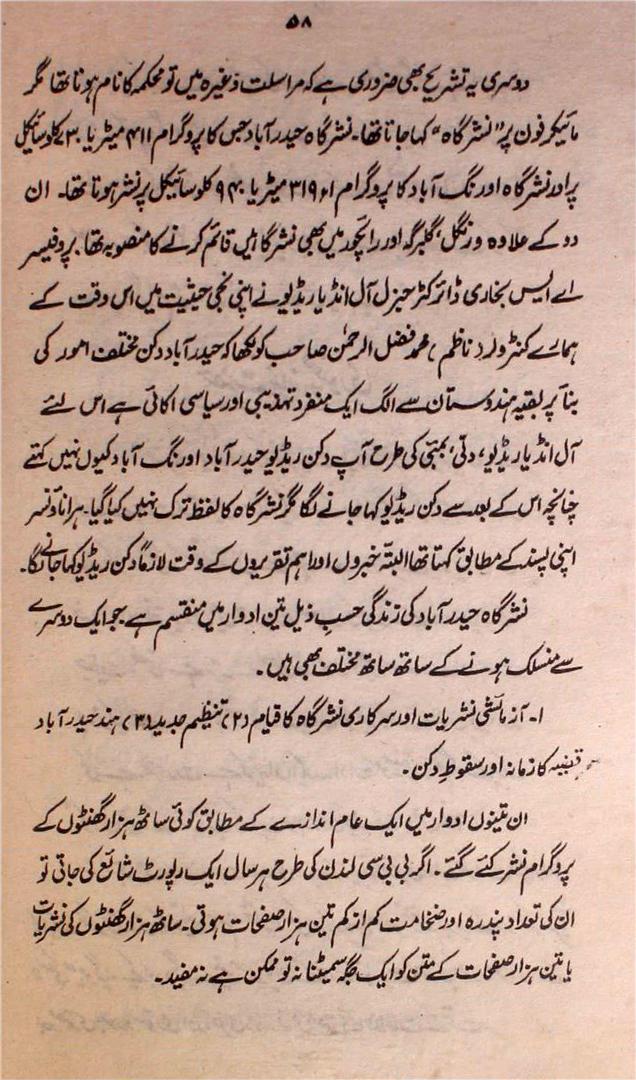 ۵۸
دوسری یہ تشریح بھی ضروری ہے کہ مراسلت وغیرہ میں تو محکمہ کا نام ہوتا تھا مگر
مائیکروفون پر "نشرگاہ" کہا جاتا تھا۔ نشرگاہ حیدرآباد جس کا پروگرام ۴۱۱ میٹر یا ۷۳۰ کلوسائیکل
پر اور نشرگاہ اورنگ آباد کا پروگرام ۳۱۹ء۱ میٹر یا ۹۴۰ کلوسائیکل پر نشر ہوتا تھا۔ ان
دو کے علاوہ ورنگل، گلبرگہ اور رائچور میں بھی نشرگاہیں قائم کرنے کا منصوبہ تھا۔ پروفیسر
اے ایس بخاری ڈائرکٹر جنرل آل انڈیا ریڈیو نے اپنی نجی حیثیت میں اس وقت کے
ہمارے کنٹرولر (ناظم) محمد فضل الرحمٰن صاحب کو لکھا کہ حیدرآباد دکن مختلف امور کی
بنا پر بقیہ ہندوستان سے الگ ایک منفرد تہذیبی اور سیاسی اکائی ہے اس لئے
آل انڈیا ریڈیو، دلی، بمبئی کی طرح آپ دکن ریڈیو حیدرآباد اورنگ آباد کیوں نہیں کہتے
چنانچہ اس کے بعد سے دکن ریڈیو کہا جانے لگا مگر نشرگاہ کا لفظ ترک نہیں کیا گیا۔ ہر اناؤنسر
اپنی پسند کے مطابق کہتا تھا البتہ خبروں اور اہم تقریروں کے وقت لازماً دکن ریڈیو کہا جانے لگا۔
نشرگاہ حیدرآباد کی زندگی حسبِ ذیل تین ادوار میں منقسم ہے جو ایک دوسرے
سے منسلک ہونے کے ساتھ ساتھ مختلف بھی ہیں۔
۱۔ آزمائشی نشریات اور سرکاری نشرگاہ کا قیام (۲) تنظیم جدید (۳) ہند حیدرآباد
قضیہ کا زمانہ اور سقوطِ دکن۔
ان تینوں ادوار میں ایک عام اندازے کے مطابق کوئی ساٹھ ہزار گھنٹوں کے
پروگرام نشر کئے گئے۔ اگر بی بی سی لندن کی طرح ہر سال ایک رپورٹ شائع کی جاتی تو
ان کی تعداد پندرہ اور ضخامت کم از کم تین ہزار صفحات ہوتی۔ ساٹھ ہزار گھنٹوں کی نشریات
یا تین ہزار صفحات کے متن کو ایک جگہ سمیٹنا نہ تو ممکن ہے نہ مفید۔